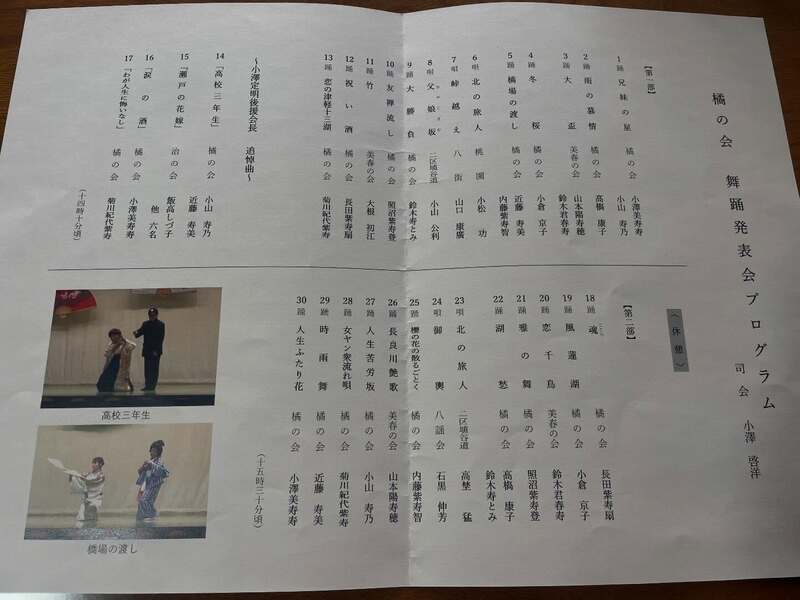 橘の会 舞踊発表会プログラム
司会 小澤 啓洋
【第一部】
1 踊 兄妹の星 橘の会 小澤美寿寿 小山 寿乃
2 踊 雨の慕情 橘の会 髙橋 康子
3 踊 大盃 美春の会 山本陽寿穂 鈴木君春寿
4 踊 冬桜 橘の会 小倉 京子
5 踊 橋場の渡し 橘の会 近藤 寿美 内藤紫寿智
6 唄 北の旅人 桃園 小松 功
7 唄 峠越え 八街 山口 康廣
8 唄 父娘坂 二区埴谷道 小山 公利
9 踊 大勝負 橘の会 鈴木寿とみ
10 踊 友禅流し 橘の会 照沼紫寿登
11 踊 竹 美春の会 大根 初江
12 踊 祝い酒 橘の会 長田紫寿扇
13 踊 恋の津軽十三湖 橘の会 菊川紀代紫寿
～小澤定明後援会長 追悼曲～
14 「高校三年生」 橘の会 小山 寿乃 近藤 寿美
15 「瀬戸の花嫁」 治の会 飯高しづ子 他 六名
16 「涙の酒」 橘の会 小澤美寿寿
17 「わが人生に悔いなし」 橘の会 菊川紀代紫寿
（十四時十分頃）
〈休憩〉
【第二部】
18 踊 魂 橘の会 長田紫寿扇
19 踊 風蓮湖 橘の会 小倉 京子
20 踊 恋千鳥 美春の会 鈴木君春寿
21 踊 雅の舞 橘の会 照沼紫寿登
22 踊 湖愁 橘の会 髙橋 康子 鈴木寿とみ
23 唄 北の旅人 二区埴谷道 高埜 猛
24 唄 御輿 八謡会 石黒 伸芳
25 踊 櫻の花の散るごとく 橘の会 内藤紫寿智
26 踊 長良川艶歌 美春の会 山本陽寿穂
27 踊 人生苦労坂 橘の会 小山 寿乃
28 踊 女ヤン衆流れ唄 橘の会 菊川紀代紫寿
29 踊 時雨舞 橘の会 近藤 寿美
30 踊 人生ふたり花 橘の会 小澤美寿寿
（十五時三十分頃）
高校三年生
橋場の渡し